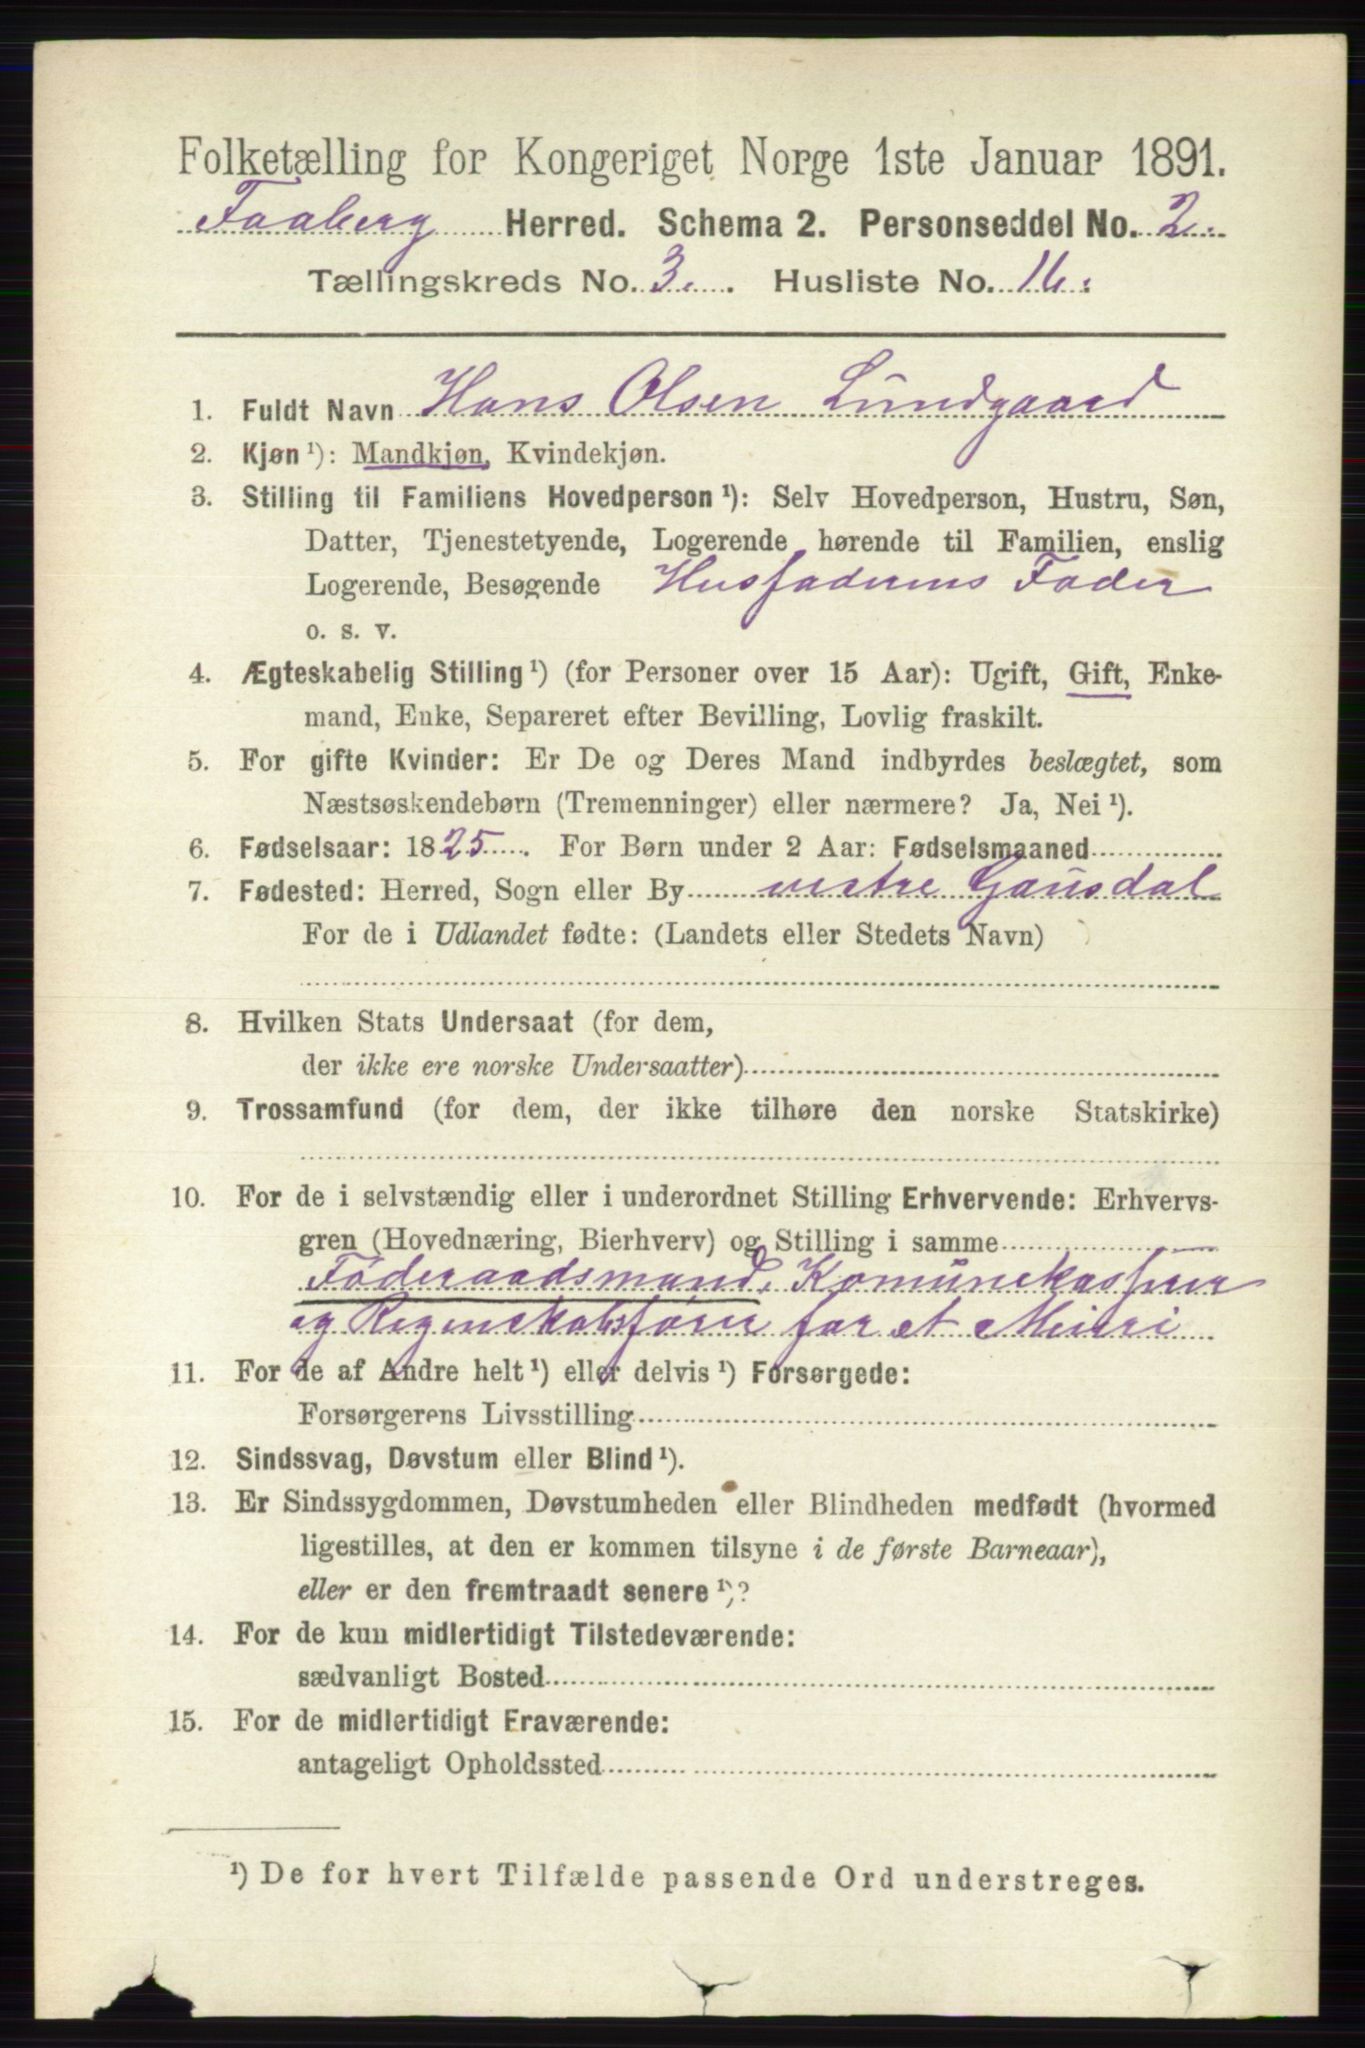 Folketælling for Kongeriget Norge 1ste Januar 1891.
Faaberg Herred. Schema 2. Personseddel No. 2.
Tællingskreds No. 3. Husliste No. 16.
1. Fuldt Navn Hans Olsen Lundgaard
2. Kjøn ¹): Mandkjøn, Kvindekjøn.
3. Stilling til Familiens Hovedperson ¹): Selv Hovedperson, Hustru, Søn,
Datter, Tjenestetyende, Logerende hørende til Familien, enslig
Logerende, Besøgende Husfaderens Fader
o. s. v.
4. Ægteskabelig Stilling ¹) (for Personer over 15 Aar): Ugift, Gift, Enke-
mand, Enke, Separeret efter Bevilling, Lovlig fraskilt.
5. For gifte Kvinder: Er De og Deres Mand indbyrdes beslægtet, som
Næstsøskendebørn (Tremenninger) eller nærmere? Ja, Nei ¹).
6. Fødselsaar: 1825. For Børn under 2 Aar: Fødselsmaaned
7. Fødested: Herred, Sogn eller By vestre Gausdal
For de i Udlandet fødte: (Landets eller Stedets Navn)
8. Hvilken Stats Undersaat (for dem,
der ikke ere norske Undersaatter)
9. Trossamfund (for dem, der ikke tilhøre den norske Statskirke)
10. For de i selvstændig eller i underordnet Stilling Erhvervende: Erhvervs-
gren (Hovednæring, Bierhverv) og Stilling i samme
Føderaadsmand, Komunekasserer
og Regenskabsfører for et Meieri
11. For de af Andre helt ¹) eller delvis ¹) Forsørgede:
Forsørgerens Livsstilling
12. Sindssvag, Døvstum eller Blind ¹).
13. Er Sindssygdommen, Døvstumheden eller Blindheden medfødt (hvormed
ligestilles, at den er kommen tilsyne i de første Barneaar),
eller er den fremtraadt senere ¹)?
14. For de kun midlertidigt Tilstedeværende:
sædvanligt Bosted
15. For de midlertidigt Fraværende:
antageligt Opholdssted
¹) De for hvert Tilfælde passende Ord understreges.